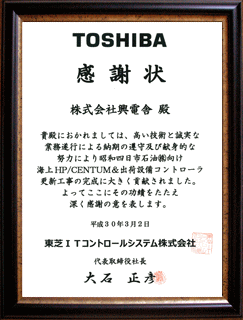 TOSHIBA
感謝状
株式会社興電舎 殿
貴殿におかれましては、高い技術と誠実な
業務遂行による納期の遵守及び献身的な
努力により昭和四日市石油㈱向け
海上HP/CENTUM&出荷設備コントローラ
更新工事の完成に大きく貢献されました。
よってここにその功績をたたえ
深く感謝の意を表します。
平成30年3月2日
東芝ITコントロールシステム株式会社
代表取締役社長
大石 正彦